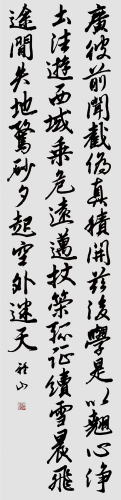 廣彼前聞截偽真積開茲後學是以翹心淨
土法遊西域乘危遠邁杖策孤征積雪晨飛
途間失地驚砂夕起空外迷天